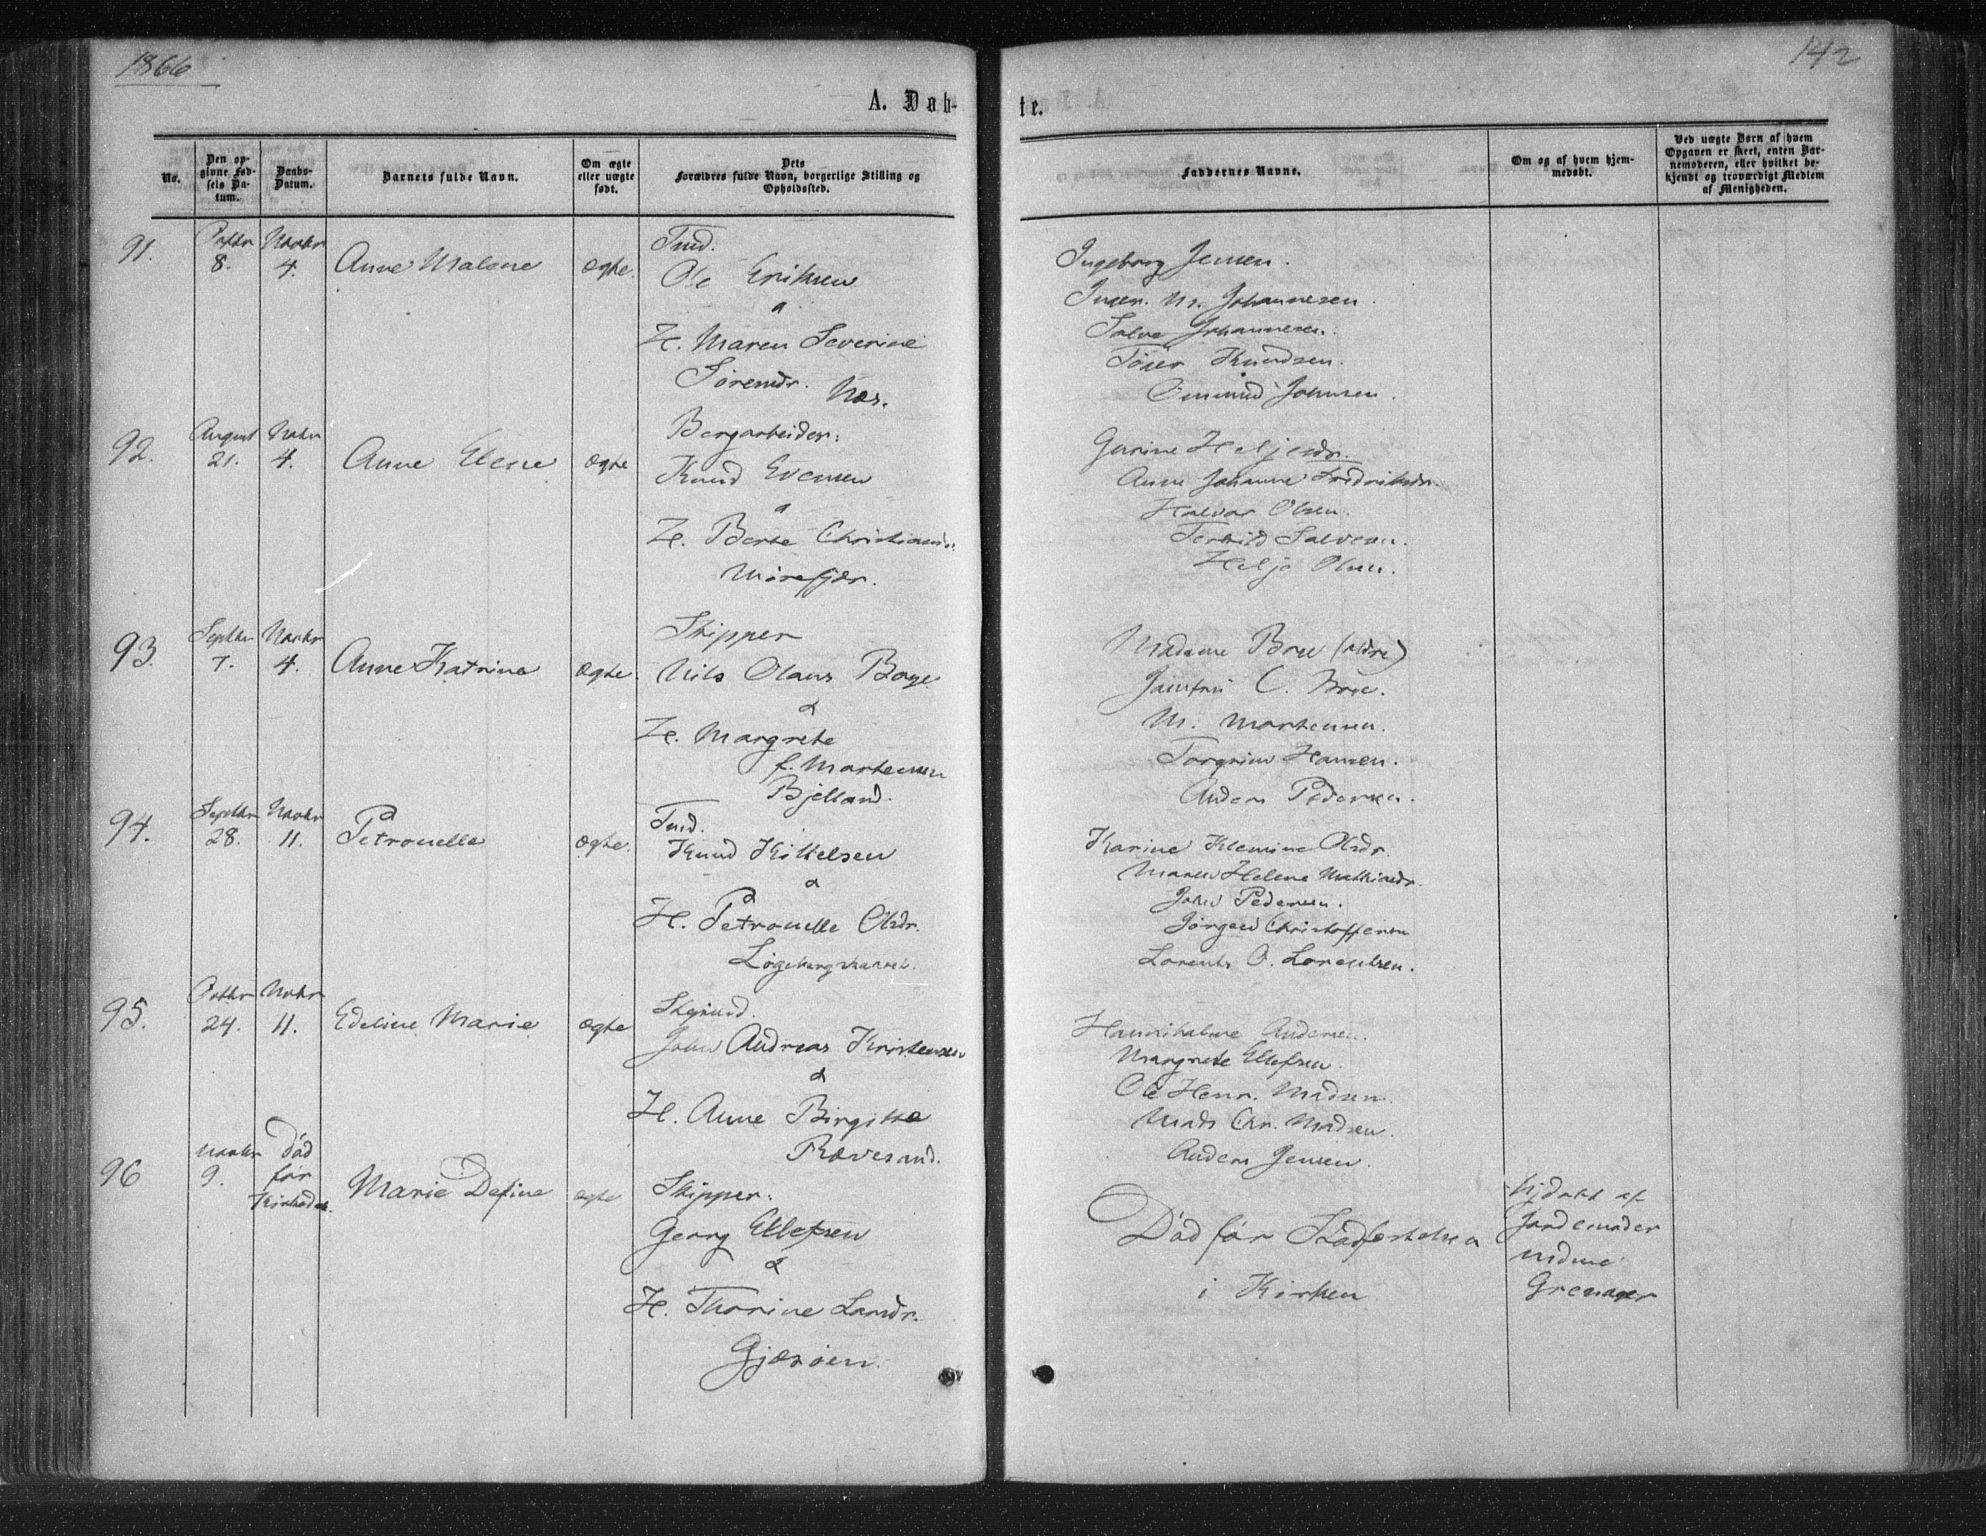 1866
142
A. Døb-
te.
No.
Den op-
givne Fød-
sels Da-
tum.
Daabs-
Datum.
Barnets fulde Navn.
Om ægte
eller uægte
født.
Dets
Forældres fulde Navn, borgerlige Stilling og
Opholdssted.
Faddernes Navne.
Om og af hvem hjem-
medøbt.
Ved uægte Barn af hvem
Opgaven er skeet, enten Bar-
nemoderen, eller hvilket be-
kjendt og troværdigt Medlem
af Menigheden.
91.
Octbr
8.
Novbr
4.
Anne Malene
ægte.
Tmd.
Ole Eriksen
&
H. Maren Severine
Sørensdr.
Næs.
Ingeborg Jensen.
Inger M. Johannesen.
Salve Johannesen.
Tøier Knudsen.
Omund Johnsen.
92.
August
21.
Novbr
4.
Anne Elene
ægte
Bergarbeider:
Knud Evensen
&
H. Berte Christiansdr.
Mørefjær.
Gurine Heljesdr.
Anne Johanne Fredriksdr.
Halvor Olsen.
Terkild Salvesen.
Helje Olsen.
93.
Septbr
7.
Novbr
4.
Anne Katrine
ægte.
Skipper
Nils Olaus Boye
&
H. Margrete
f. Martensen
Bjelland.
Madame Bree (ældre)
Jomfru C. Bree.
M. Martensen.
Torgrim Hansen.
Anders Pedersen.
94.
Septbr
28.
Novbr
11.
Petronelle
ægte.
Tmd.
Knud Kittelsen
&
H. Petronelle Olsdr.
Karine Klemine Olsdr.
Maren Helene Mathiasdr.
John Pedersen.
Jørgen Christoffersen
Lorents O. Lorentsen.
95.
Octbr
24.
Novbr
11.
Edeline Marie
ægte
John Andreas Kristensen
&
H. Anne Birgitte
Rævesand.
Andersen.
Margrete Ellefsen.
Ole Henr. Madsen.
Mads Chr. Madsen.
Anders Jensen.
96
Novbr
9.
Død
før
Kirkedåb.
Marie Define
ægte
Skipper:
Georg Ellefsen
&
H. Thorine Larsdr.
Gjæsøen.
Død før Stadfæstelsen
i Kirken.
Hjdøbt af
Jordemoder
Grenager